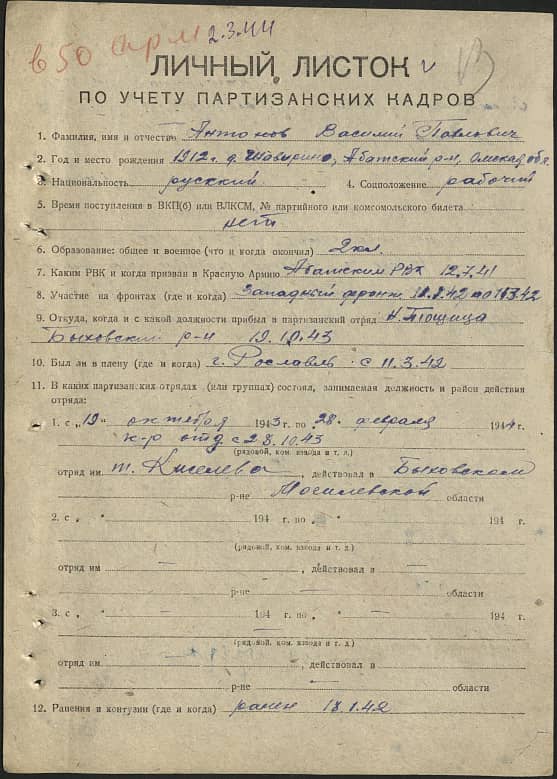 в 50 арм 2.3.44
ЛИЧНЫЙ ЛИСТОК
ПО УЧЕТУ ПАРТИЗАНСКИХ КАДРОВ
1. Фамилия, имя и отчество Антонов Василий Павлович
2. Год и место рождения 1912 г. д. Шавырино, Абатский р-н, Омская обл.
3. Национальность русский 4. Соцположение рабочий
5. Время поступления в ВКП(б) или ВЛКСМ, № партийного или комсомольского билета
нет
6. Образование: общее и военное (что и когда окончил) 2 кл.
7. Каким РВК и когда призван в Красную Армию Абатским РВК 12.7.41
8. Участие на фронтах (где и когда) Западный фронт по 11.3.42
9. Откуда, когда и с какой должности прибыл в партизанский отряд Н. Тощица
Быховский р-н 19.10.43
10. Был ли в плену (где и когда) г. Рославль с 11.3.42
11. В каких партизанских отрядах (или группах) состоял, занимаемая должность и район действия
отряда:
1. с „19" октября 1943 г. по „28" февраля 1944 г.
к-р отд с 28.10.43
(рядовой, ком. взвода и т. д.)
отряд им. т. Киселева, действовал в Быховском
р-не Могилевской области
2. с „ " 194 г. по „ " 194 г.
(рядовой, ком. взвода и т. д.)
отряд им — , действовал в —
р-не — области
3. с „ — " 194 г. по „ " — 194 г.
(рядовой, ком. взвода и т. д.)
отряд им — , действовал в
р-не — области
12. Ранения и контузии (где и когда) ранен 18.1.42